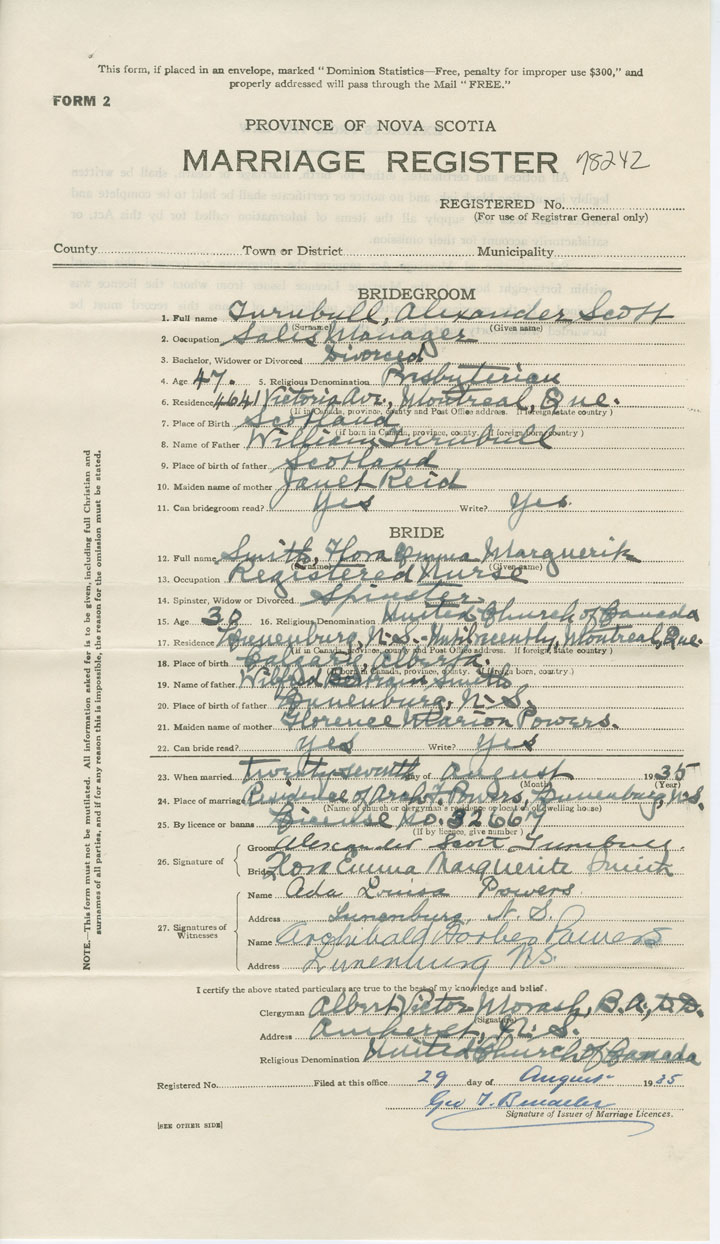 This form, if placed in an envelope, marked "Dominion Statistics—Free, penalty for improper use $300," and
properly addressed will pass through the Mail "FREE."
FORM 2
PROVINCE OF NOVA SCOTIA
MARRIAGE REGISTER 78242
REGISTERED No.
(For use of Registrar General only)
County Town or District Municipality
BRIDEGROOM
1. Full name Turnbull, Alexander Scott
(Surname) (Given name)
2. Occupation Sales Manager
3. Bachelor, Widower or Divorced Divorced
4. Age 47. 5. Religious Denomination Presbyterian
6. Residence 4641 Victoria Ave., Montreal, Que.
(If in Canada, province, county and Post Office address. If foreign, state country)
7. Place of Birth Scotland
(if born in Canada, province, county. If foreign born, country)
8. Name of Father William Turnbull
9. Place of birth of father Scotland
10. Maiden name of mother Janet Reid
11. Can bridegroom read? Yes Write? Yes.
BRIDE
12. Full name Smith, Flora Emma Marguerite
(Surname) (Given name)
13. Occupation Registered Nurse
14. Spinster, Widow or Divorced Spinster
15. Age 38 16. Religious Denomination United Church of Canada
17. Residence Lunenburg, N.S. - Until recently, Montreal, Que.
(if in Canada, province, county and Post Office address. If foreign, state country)
18. Place of birth Calgary, Alberta.
(if born in Canada, province, county. If foreign born, country)
19. Name of father Wilfred Bertram Smith
20. Place of birth of father Lunenburg, N.S.
21. Maiden name of mother Florence Marion Powers.
22. Can bride read? Yes Write? Yes
23. When married Twenty seventh day of August 1935
(Month) (Year)
24. Place of marriage Residence of Arch. F. Powers, Lunenburg, N.S.
(Name of church or clergyman's residence or location of dwelling house)
25. By licence or banns License No. 32667
(If by licence, give number)
26. Signature of
Groom Alexander Scott Turnbull.
Bride Flora Emma Marguerite Smith
27. Signatures of Witnesses
Name Ada Louisa Powers
Address Lunenburg, N.S.
Name Archibald Forbes Powers
Address Lunenburg N.S.
I certify the above stated particulars are true to the best of my knowledge and belief.
Clergyman Albert Victor Morash, B.A., D.D.
(Signature)
Address Amherst, N.S.
Religious Denomination United Church of Canada
Registered No. Filed at this office 29 day of August 1935
Geo T.
Signature of Issuer of Marriage Licences.
[SEE OTHER SIDE]
NOTE.—This form must not be mutilated. All information asked for is to be given, including full Christian and
surnames of all parties, and if for any reason this is impossible, the reason for the omission must be stated.